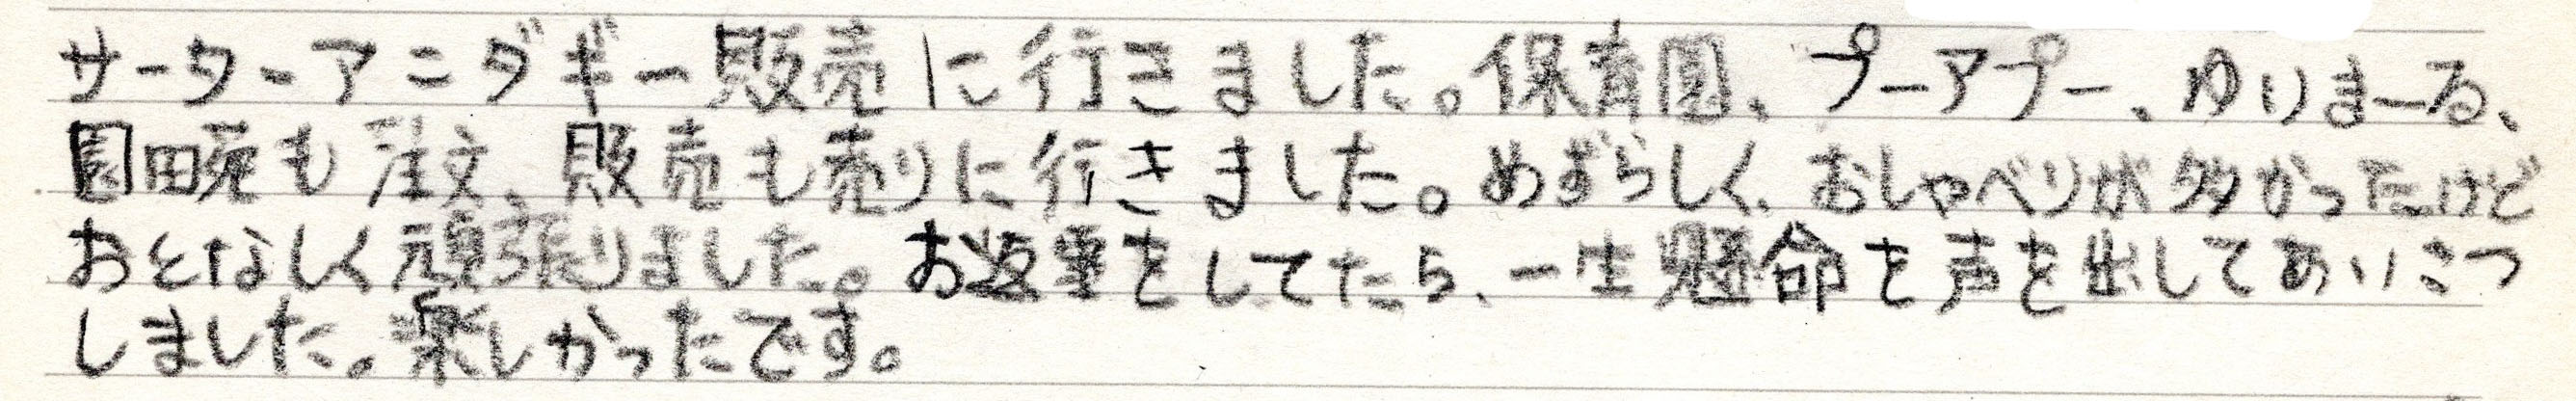 サーターアニダギー販売に行きました。保育園、プーアプー、ゆりまーる、
園田苑も注文、販売も売りに行きました。めずらしく、おしゃべりが多かったけど
おとなしく頑張りました。お返事をしてたら、一生懸命を声を出してあいさつ
しました。楽しかったです。